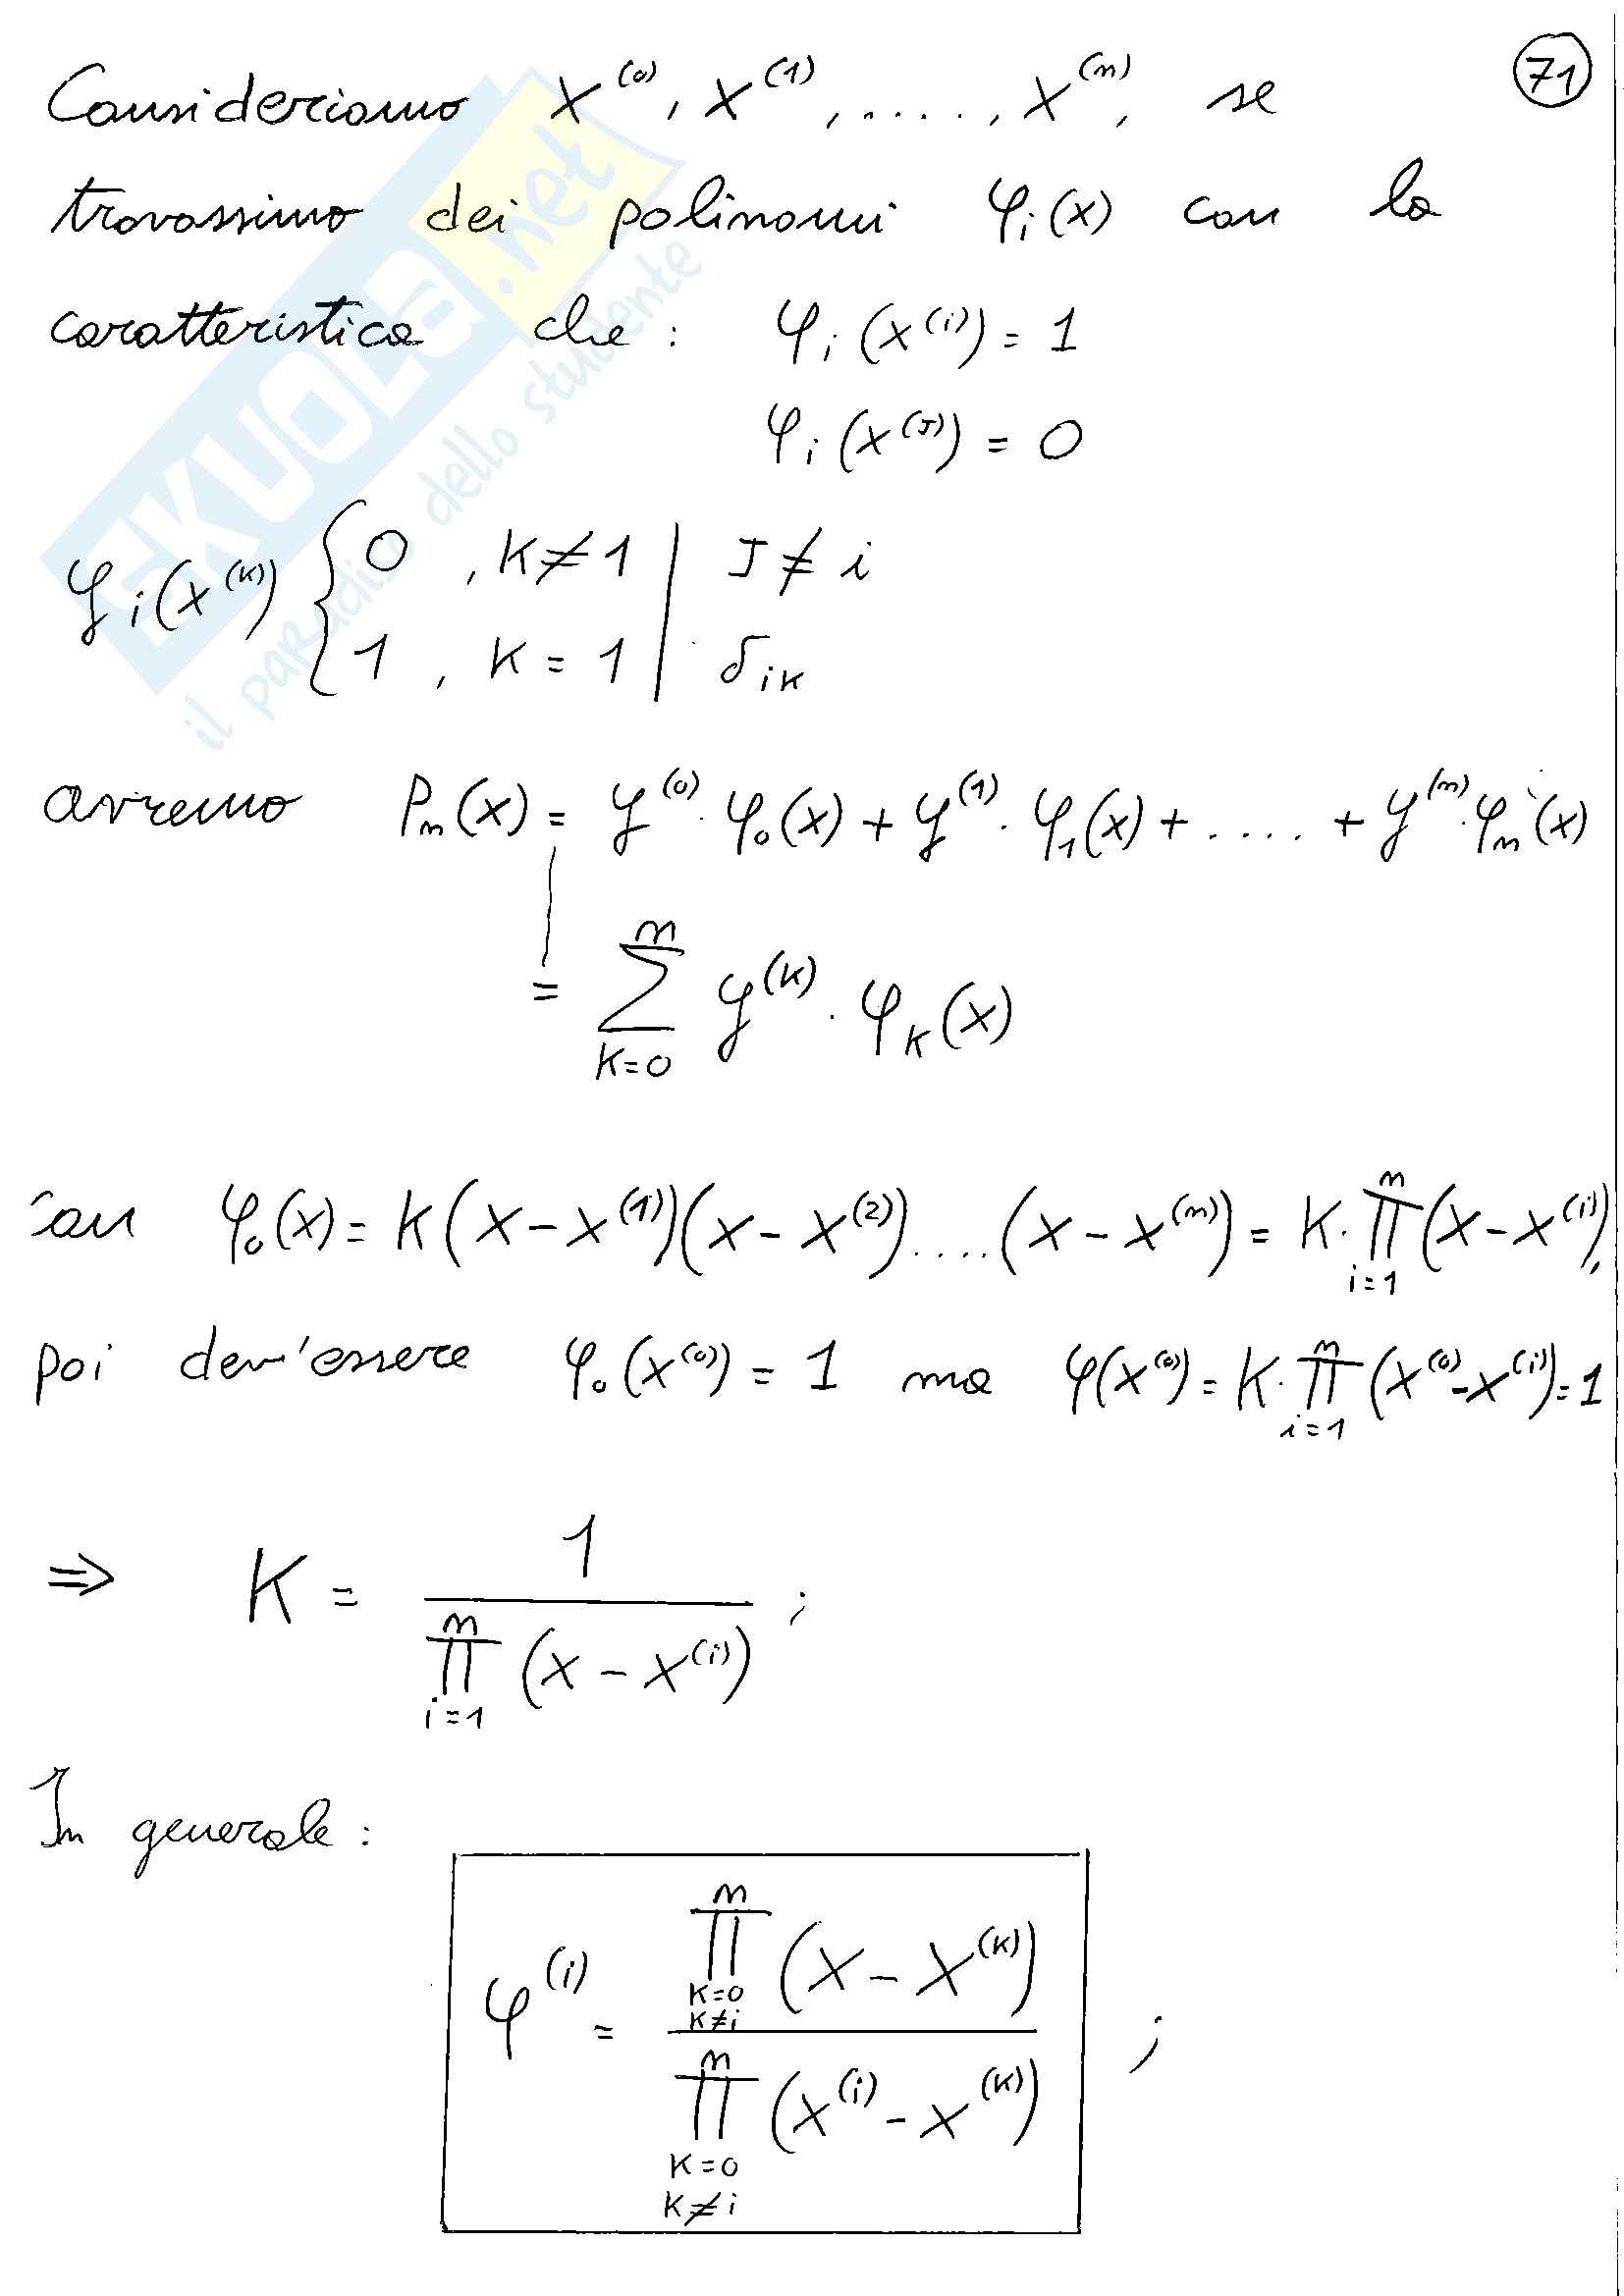 71
Consideriamo x^(0), x^(1), ....., x^(n), se
trovassimo dei polinomi φ_i(x) con la
caratteristica che: φ_i(x^(i)) = 1
φ_i(x^(J)) = 0
φ_i(x^(K)) { 0 , K≠1 | J≠i
1 , K=1 | δ_iK
avremo P_n(x) = y^(0)·φ_0(x) + y^(1)·φ_1(x) + .... + y^(n)·φ_n(x)
= ∑_{K=0}^{n} y^(K)·φ_K(x)
con φ_0(x) = K(x-x^(1))(x-x^(2))....(x-x^(n)) = K·∏_{i=1}^{n}(x-x^(i)),
poi dev'essere φ_0(x^(0)) = 1 ma φ(x^(0)) = K·∏_{i=1}^{n}(x^(0)-x^(i)) = 1
⇒ K = 1 / ∏_{i=1}^{n}(x-x^(i)) ;
In generale:
φ^(i) = ∏_{K=0, K≠i}^{n}(x-x^(K)) / ∏_{K=0, K≠i}^{n}(x^(i)-x^(K)) ;
SKUOLA.net
il paradiso dello studente